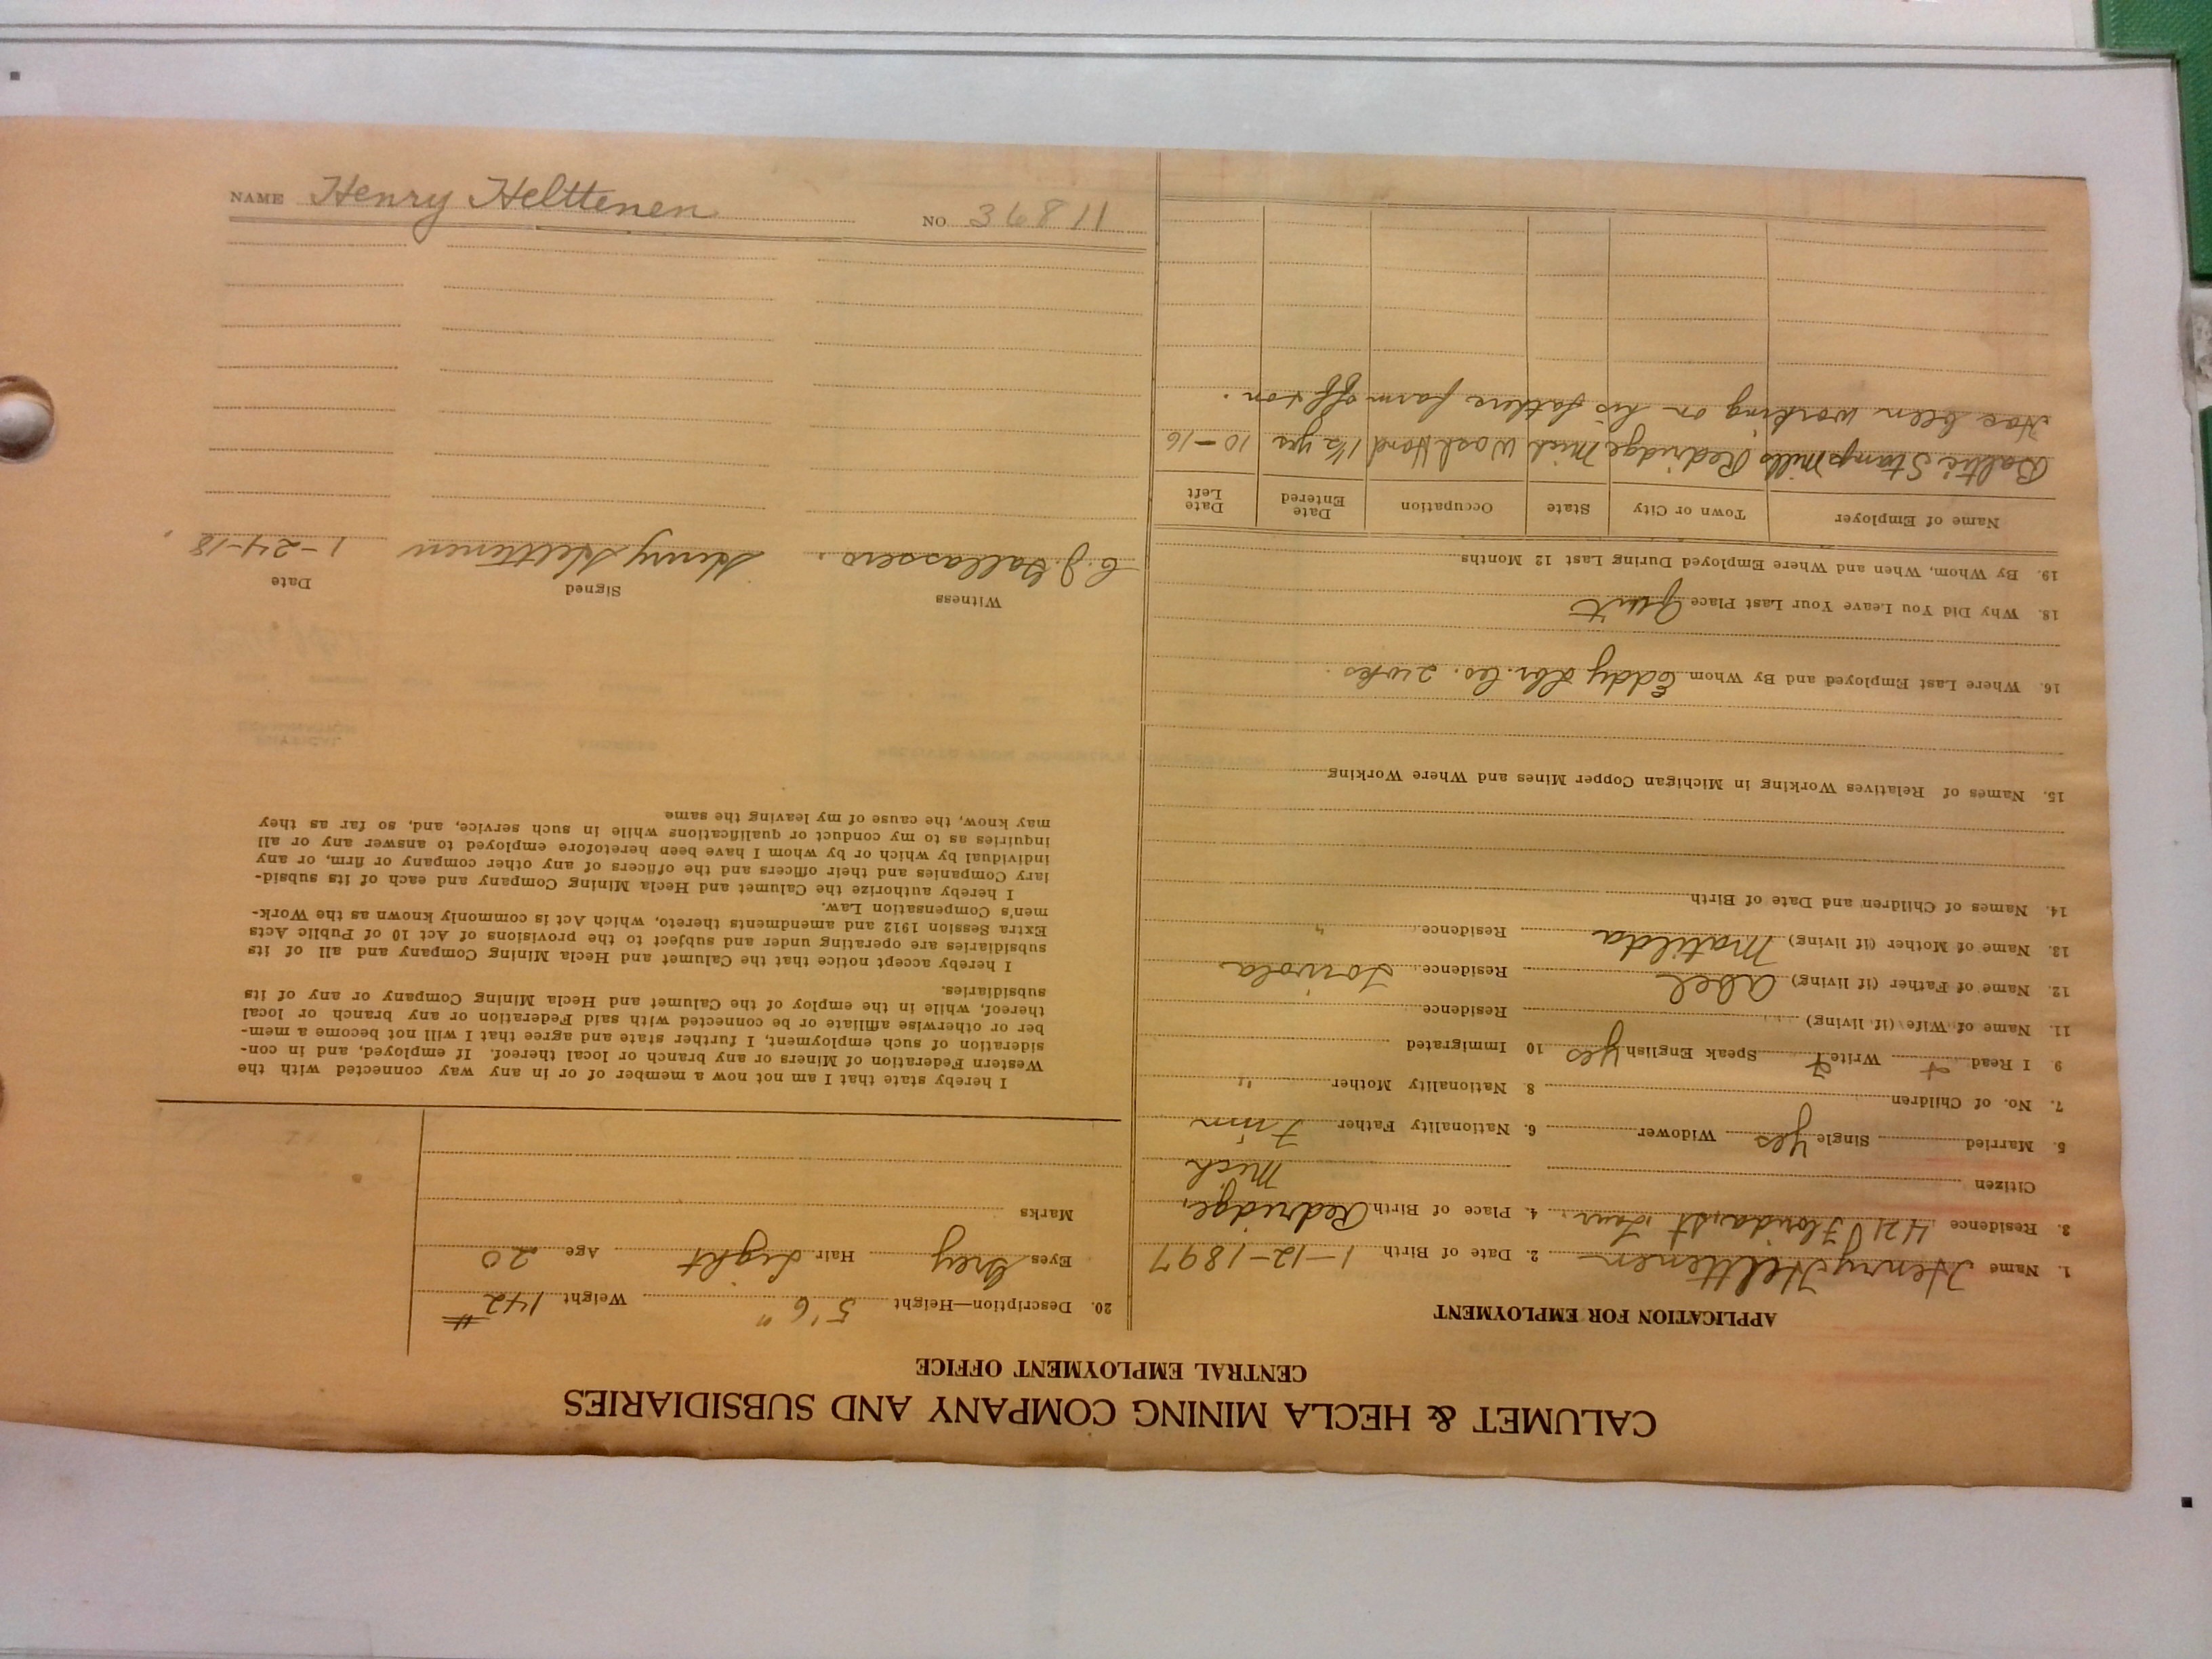 CALUMET & HECLA MINING COMPANY AND SUBSIDIARIES
CENTRAL EMPLOYMENT OFFICE
APPLICATION FOR EMPLOYMENT
1. Name Henry Helttenen 2. Date of Birth 1-12-1897
3. Residence 421 Florida St Laur. 4. Place of Birth Redridge,
Citizen Mich
5. Married Single Yes Widower 6. Nationality Father Finn
7. No. of Children 8. Nationality Mother "
9 I Read Write Speak English Yes 10 Immigrated
11. Name of Wife (if living) Residence
12. Name of Father (if living) Abel Residence Toivola
13. Name of Mother (if living) Matilda Residence "
14. Names of Children and Date of Birth
15. Names of Relatives Working in Michigan Copper Mines and Where Working
16. Where Last Employed and By Whom Eddy Lbr. Co. 2 wks.
18. Why Did You Leave Your Last Place Quit
19. By Whom, When and Where Employed During Last 12 Months
Name of Employer Town or City State Occupation Date Entered Date Left
Baltic Stamp Mills Redridge Mich Wash Hand 1½ yrs 10-16
Has been working on his fathers farm off & on.
20. Description—Height 5'6" Weight 142#
Eyes Grey Hair Light Age 20
Marks
I hereby state that I am not now a member of or in any way connected with the
Western Federation of Miners or any branch or local thereof. If employed, and in con-
sideration of such employment, I further state and agree that I will not become a mem-
ber or otherwise affiliate or be connected with said Federation or any branch or local
thereof, while in the employ of the Calumet and Hecla Mining Company or any of its
subsidiaries.
I hereby accept notice that the Calumet and Hecla Mining Company and all of its
subsidiaries are operating under and subject to the provisions of Act 10 of Public Acts
Extra Session 1912 and amendments thereto, which Act is commonly known as the Work-
men's Compensation Law.
I hereby authorize the Calumet and Hecla Mining Company and each of its subsid-
iary Companies and their officers and the officers of any other company or firm, or any
individual by which or by whom I have been heretofore employed to answer any or all
inquiries as to my conduct or qualifications while in such service, and, so far as they
may know, the cause of my leaving the same
Witness Signed Date
Henry Helttenen 1-24-18
NAME Henry Helttenen NO. 36811